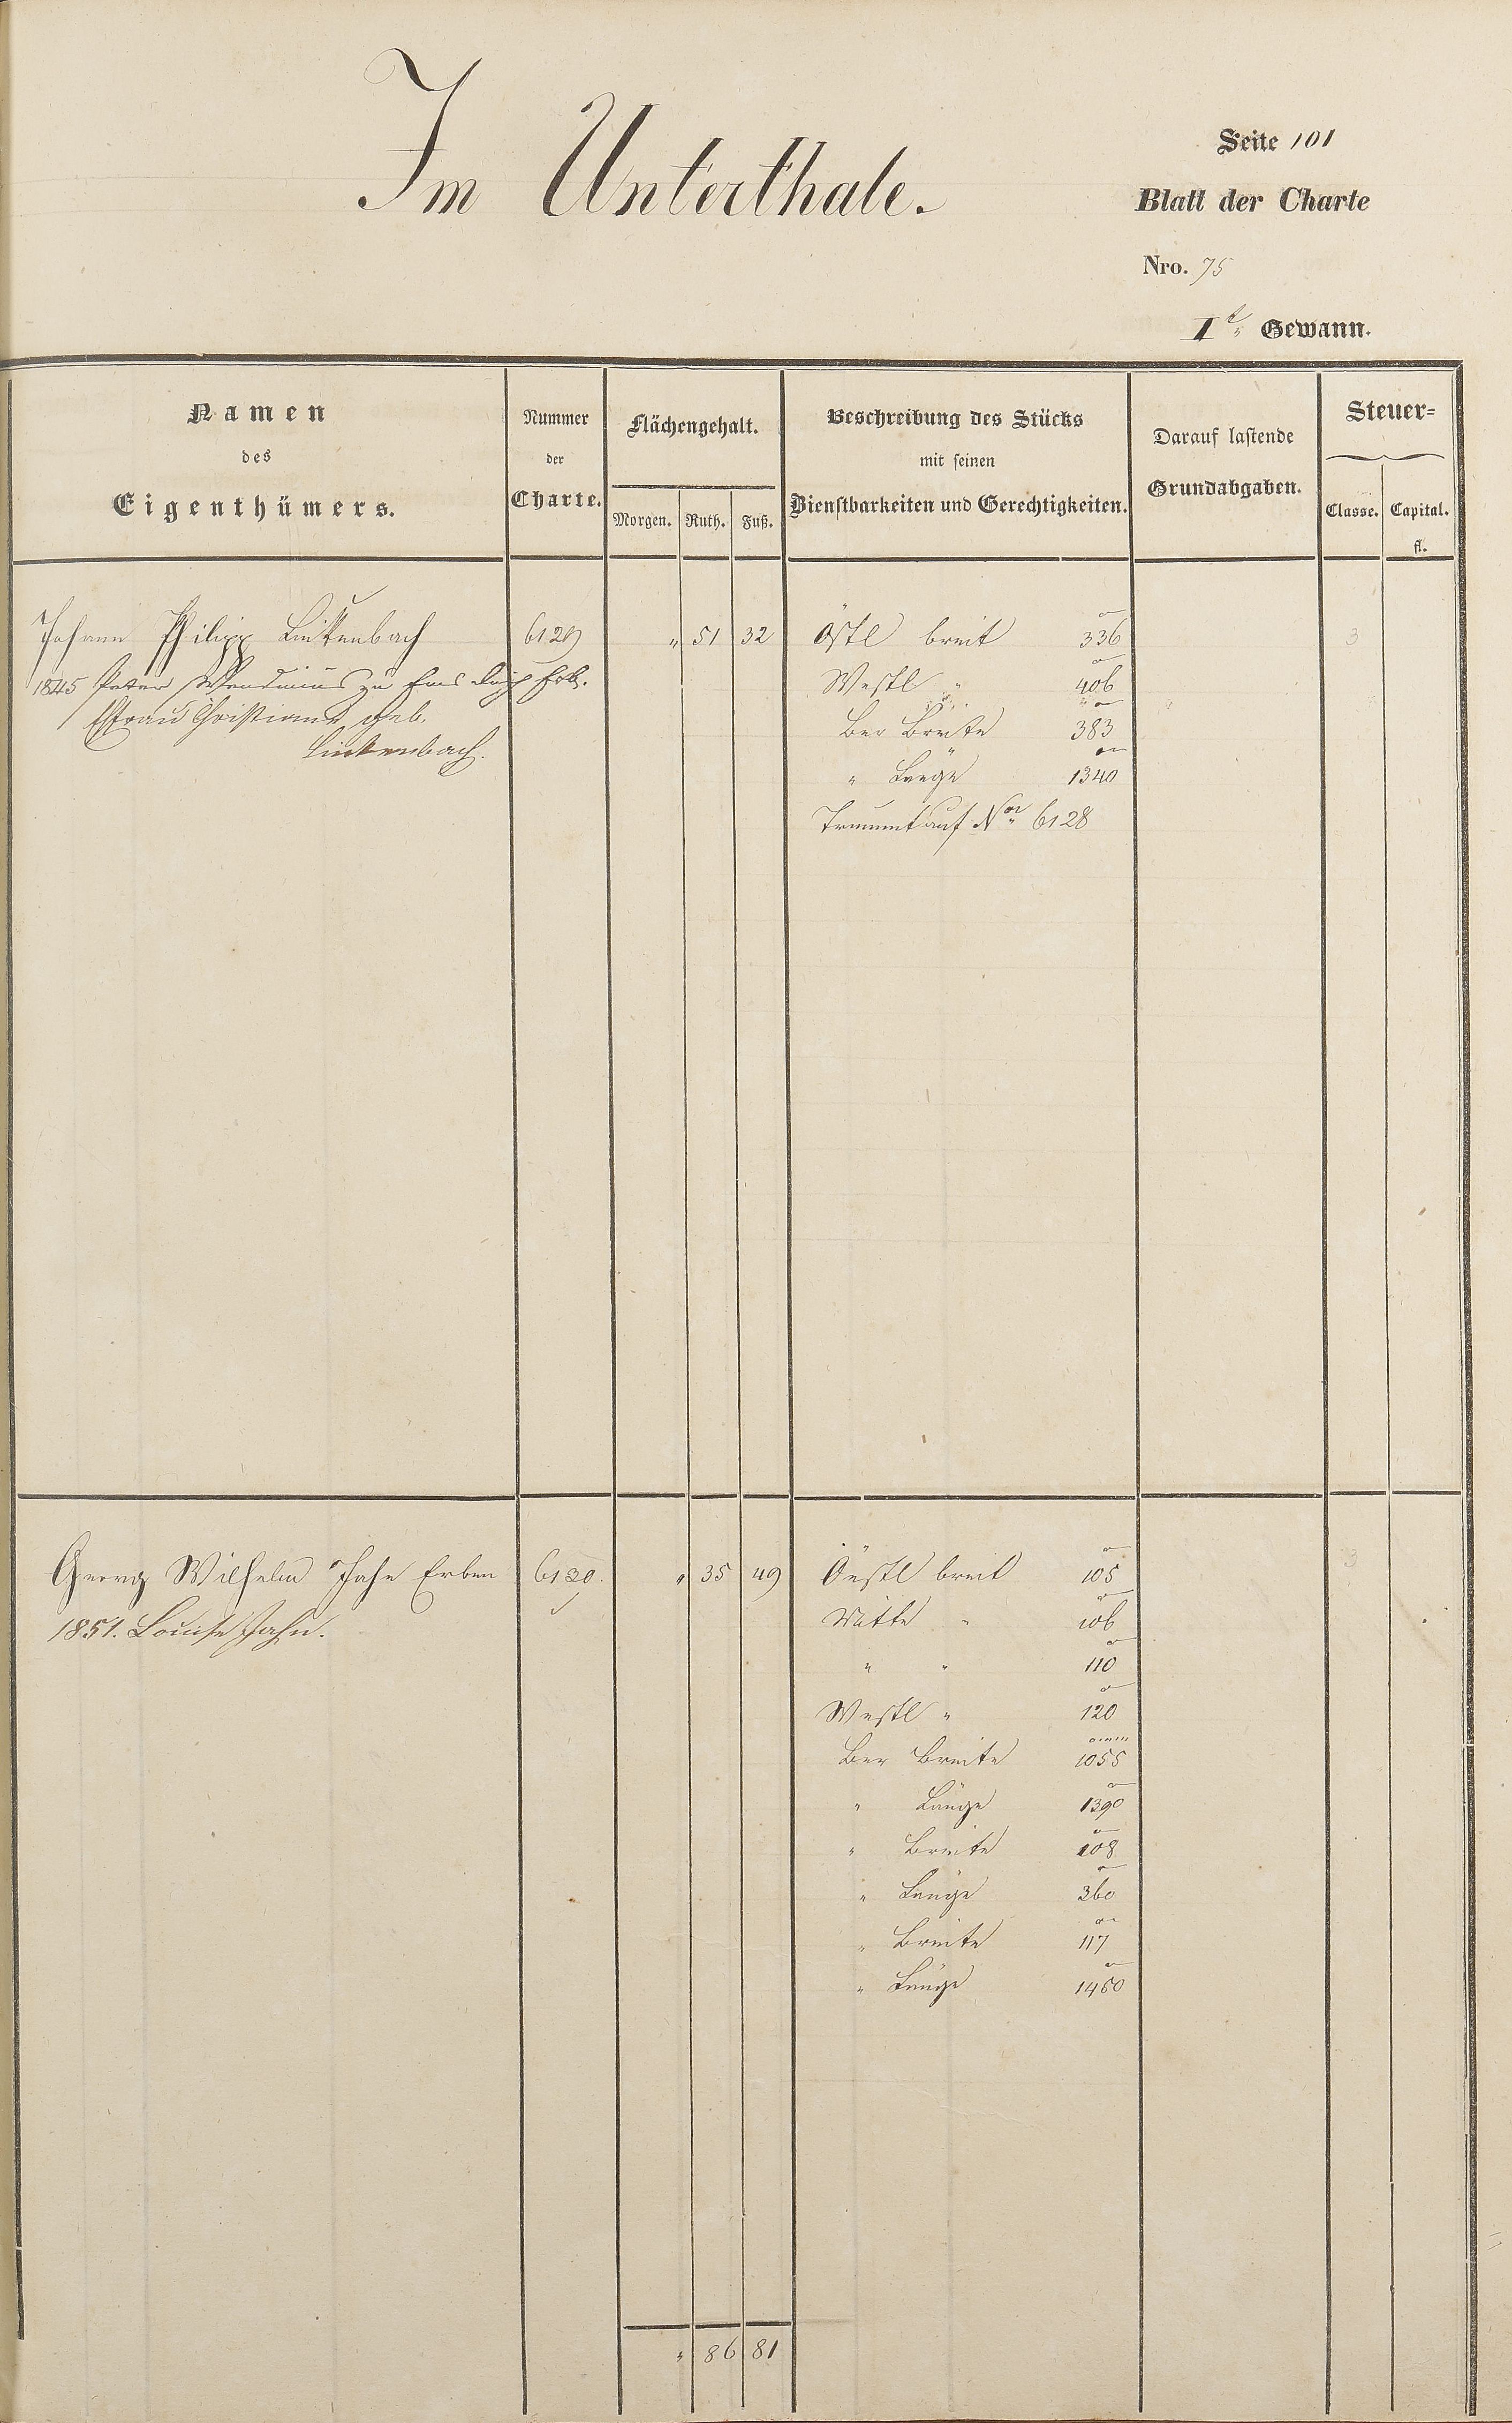 Im Unterthale.
Seite 101
Blatt der Charte
Nro. 75
I t. Gewann.
Namen
des
Eigenthümers.
Nummer
der
Charte.
Flächengehalt.
Morgen. Ruth. Fuß.
Beschreibung des Stücks
mit seinen
Dienstbarkeiten und Gerechtigkeiten.
Darauf lastende
Grundabgaben.
Steuer-
Classe. Capital.
fl.
Johann Philipp Linkenbach 6129 „ 51 32 Östl breit 336 3
1845 Peter zu Ems Westl „ 406
Ehfrau Christiane geb. Ber Breite 383
Linkenbach.
„ Länge 1340
Trummt auf No 6128
Georg Wilhelm Jahn Erben 6130. „ 35 49 Oestl breit 105 3
1851. Louise Jahn. Mitte „ 106
„ „ 110
Westl „ 120
Ber Breite 1055
„ Länge 1390
„ Breite 108
„ Länge 360
„ Breite 117
„ Länge 1450
„ 86 81